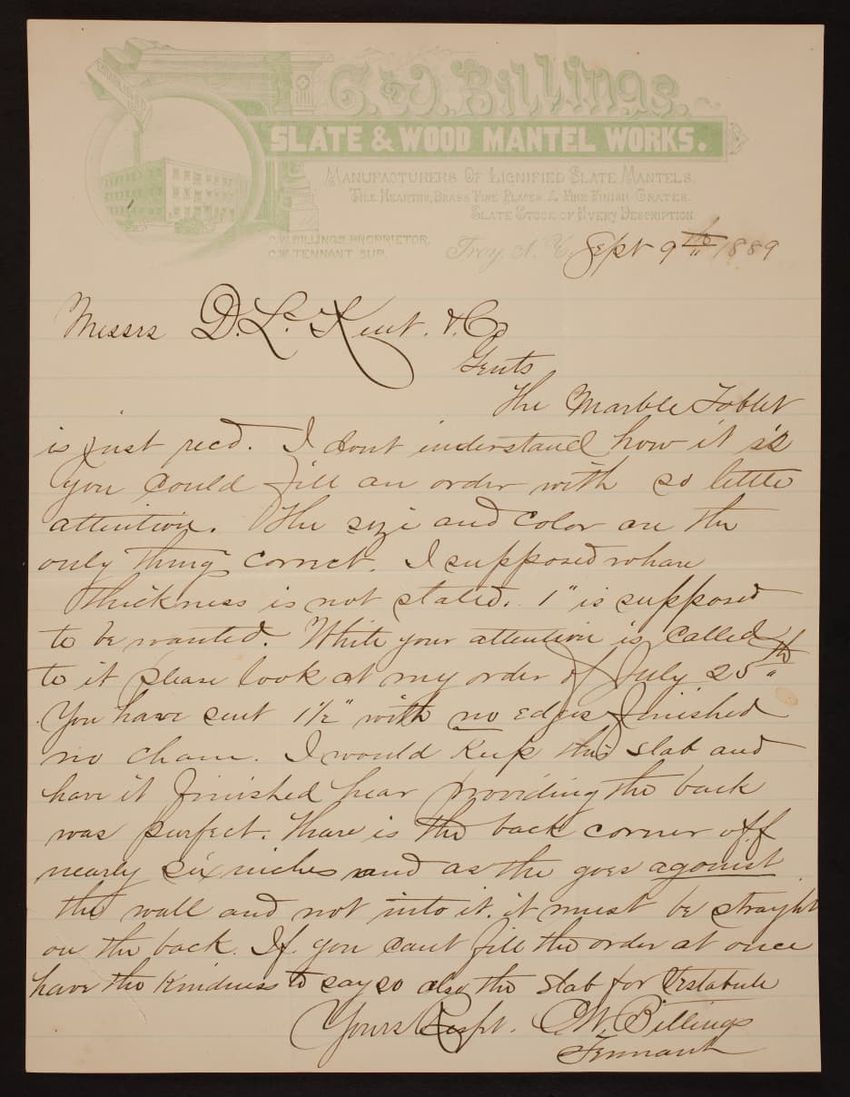 C. W. Billings.
SLATE & WOOD MANTEL WORKS.
MANUFACTURERS OF LIGNIFIED SLATE MANTELS.
TILE HEARTHS, BRASS FIRE PLACES & FINE FINISH GRATES.
SLATE STOCK OF EVERY DESCRIPTION
C.W. BILLINGS, PROPRIETOR.
C.W. TENNANT SUP.
Troy N. Y. Sept 9th 1889
Messrs D. L. Kent. & Co
Gents
The Marble Tablet
is just recd. I dont understand how it is
you could fill an order with so little
attention. The size and color are the
only thing correct. I supposed whare
thickness is not stated. 1" is supposed
to be wanted. While your attention is called
to it please look at my order of July 25th
You have sent 1½" with no edges finished
no cham. I would keep this slab and
have it finished hear providing the back
was purfect. Thare is the back corner off
nearly six inches and as the goes agonist
the wall and not into it. it must be strayht
on the back. If you cant fill the order at once
have the kindness to say so also the slab for Vestabule
Yours Respt. C.W. Billings
Tennant